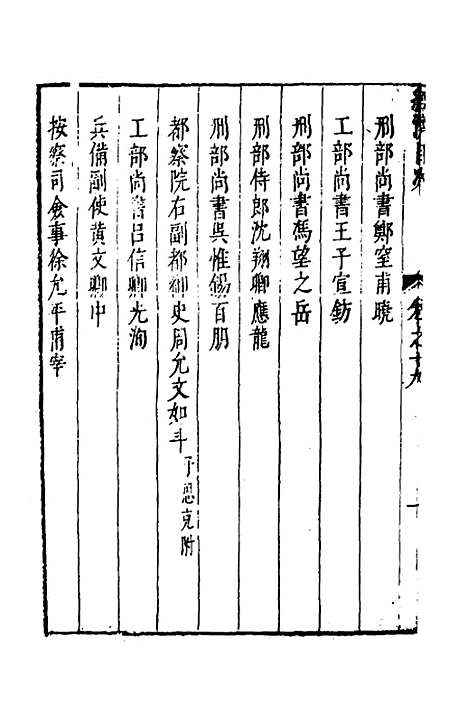 刑部尚書鄭窒甫曉
工部尚書王子宣鈁
刑部尚書馮望之岳
刑部侍郎沈翔卿應龍
刑部尚書吳惟錫百朋
都察院右副都御史周允文如斗 子思克附
工部尚書呂信卿光洵
兵備副使黃文卿中
按察司僉事徐允平甫宰
卷之十九
一